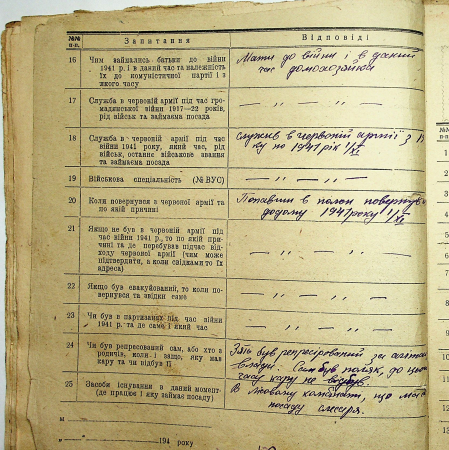 №№ п-п.
Запитання
Відповіді
16
Чим займались батьки до війни
1941 р. і в даний час та належність
їх до комуністичної партії і з
якого часу
Мати до війни і в даний
час домохазяйка
17
Служба в червоній армії під час гро-
мадянської війни 1917—22 років,
рід військ та займаєма посада
— „ — „ —
18
Служба в червоній армії під час
війни 1941 року, який час, рід
військ, останнє військове звання
та займаєма посада
служив в червоній армії з
ку по 1941 рік 1/XI
19
Військова спеціяльність (№ ВУС)
— „ — „ —
20
Коли повернувся в червоної армії та
по якій причині
Попавши в полон повернувся
додому 1941 року 1/XI
21
Якщо не був в червоній армії під
час війни 1941 р., то по якій при-
чині та де перебував підчас від-
ходу червоної армії (чим може
підтвердити, а коли свідками то їх
адреса)
— „ — „ —
22
Якщо був евакуйований, то коли по-
вернувся та звідки саме
— „ — „ —
23
Чи був в партизанах під час війни
1941 р. та де саме і який час
— „ — „ —
24
Чи був репресований сам, або хто з
родичів, коли і защо, яку мав
кару та чи відбув її
був репресірований за
влади. Сам був поляк, до цього
часу кару не відбув.
25
Засоби існування в даний момент-
(де працює і яку займає посаду)
В комбінат, що має
посаду слюсаря.
м
„ 194 року
№№
п-п.
1
2
3
4
5
6
7
8
9
10
11.
12.
13.